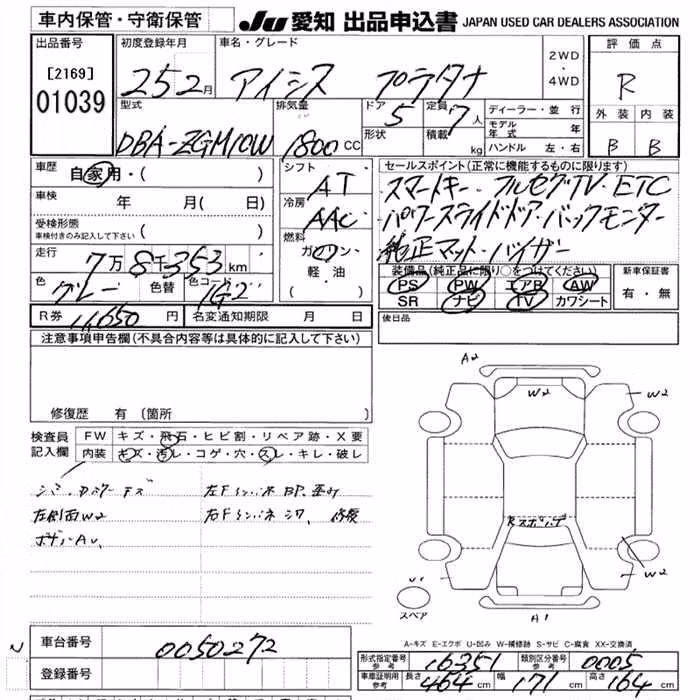 車内保管・守衛保管
JU 愛知 出品申込書 JAPAN USED CAR DEALERS ASSOCIATION
出品番号
[2169]
01039
初度登録年月
25 2月
車名・グレード
アイシス プラタナ
2WD
・
4WD
評価点
R
外装 内装
B B
型式
DBA-ZGM10W
排気量
1800 CC
ドア
5
形状
定員
7人
積載 kg
ディーラー・並行
モデル年式 年
ハンドル 左・右
車歴 自家用・( )
車検 年 月( 日)
受検形態
車検付きのみ記入して下さい ( )
走行 7万8千353km
色 グレー 色替 色コード 1G2
R券 11,650 円 名変通知期限 月 日
シフト
AT
冷房
AAC
燃料
ガソリン
軽油
( ・ )
セールスポイント(正常に機能するものに限ります)
スマートキー・フルセグTV・ETC
パワースライドドア・バックモニター
純正マット・バイザー
装備品(純正品に限り○をつけてください)
PS PW エアB AW
SR ナビ TV カワシート
新車保証書
有・無
後日品
注意事項申告欄(不具合内容等は具体的に記入して下さい)
修復歴 有 (箇所 )
検査員記入欄
FW キズ・飛石・ヒビ割・リペア跡・X要
内装 キズ・汚レ・コゲ・穴・スレ・キレ・破レ
左Fインパネ BP、歪み
左側面W2
右Fインパネ シワ、修復
A2
W2
W2
W2
A1
スペア
A-キズ E-エクボ U-凹み W-補修跡 S-サビ C-腐食 XX-交換済
N
車台番号 0050272
登録番号
形式指定番号 参考 16351 類別区分番号 参考 0005
車庫証明用 参考 長さ 464 cm 幅 171 cm 高さ 164 cm